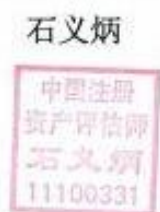 石义炳
中国注册
资产评估师
石义炳
11100331